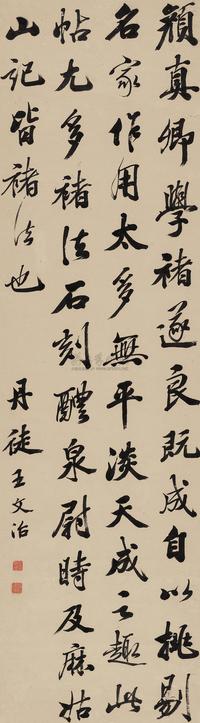 颜真卿學褚遂良既成自以挑剔
名家作用太多無平淡天成之趣此
帖尤多褚法石刻醴泉尉時及麻姑
山記皆褚法也
丹徒王文治